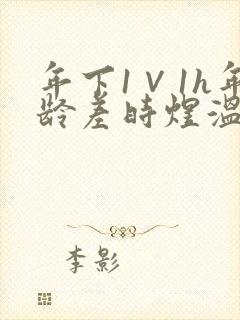 年下1V1h年
龄差时煌温
李影